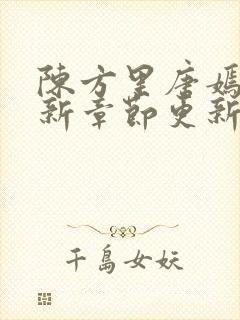 陳方里唐嫣
新章節更新
千島女妖